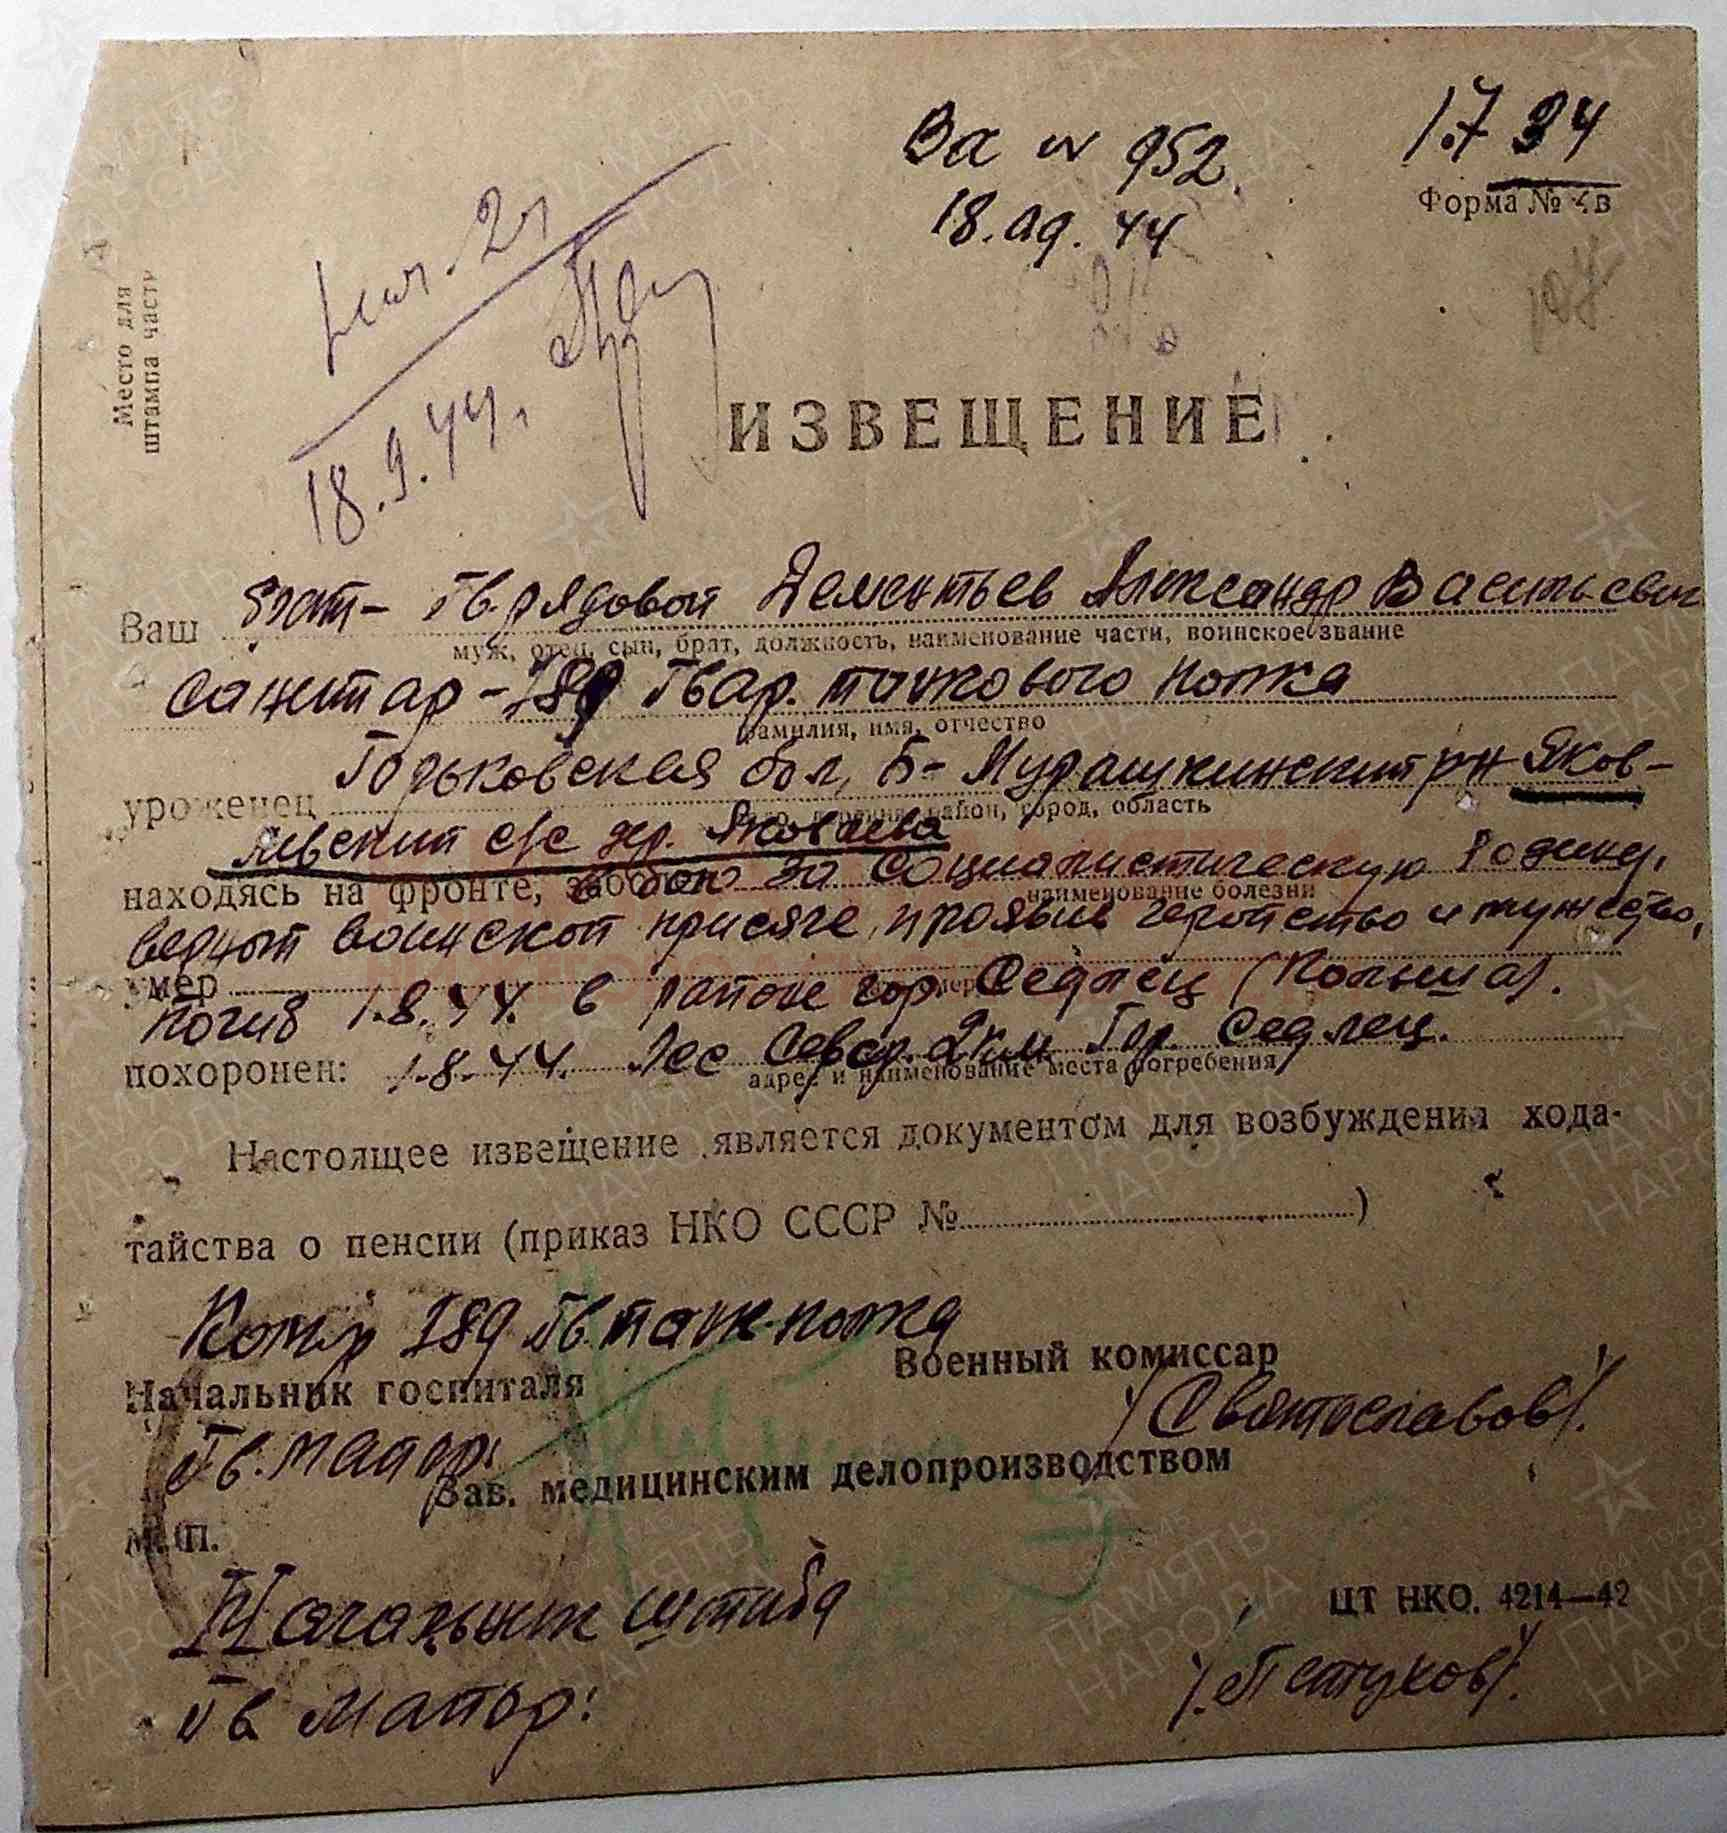 За № 952.
18.09.44
1.7 34
Форма № 4в
18.9.44.
Место для
штампа части
ИЗВЕЩЕНИЕ
Ваш брат - Гв. рядовой Дементьев Александр Васильевич
муж, отец, сын, брат, должность, наименование части, воинское звание
Санитар - 189 Гвар. полка
фамилия, имя, отчество
уроженец Горьковская обл, Б-Мурашкинский р-н Яков-
район, город, область
левский с/с дер. Яковлева
находясь на фронте, в бою за Социалистическую Родину,
наименование болезни
верный воинской присяге, проявив геройство и мужество,
умер
погиб 1.8.44. в районе гор. Седлец (Польша).
похоронен: 1.8.44. Лес Север. 2 км Гор. Седлец.
адрес и наименование места погребения
Настоящее извещение является документом для возбуждения хода-
тайства о пенсии (приказ НКО СССР № )
Комдир 189 Гв. полка
Военный комиссар
Начальник госпиталя
/Святославов/.
Гв. майор:
Зав. медицинским делопроизводством
М. П.
Начальник штаба
ЦТ НКО. 4214—42
Гв майор:
/Петухов/.
ПАМЯТЬ
НАРОДА